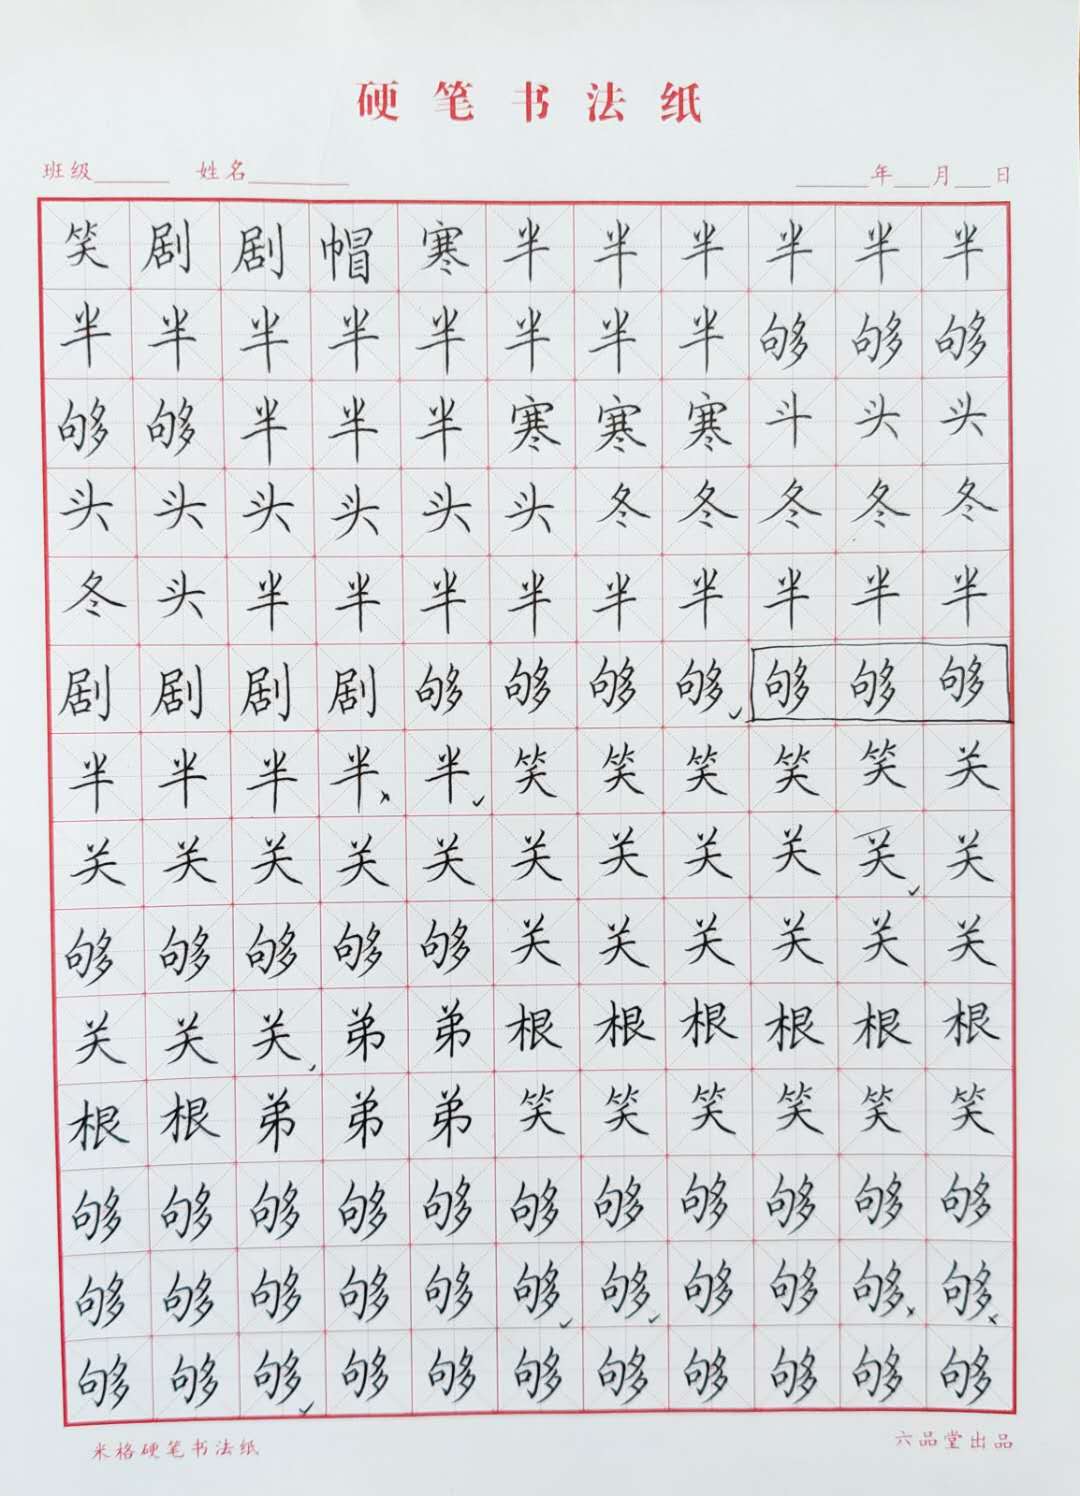 硬笔书法纸
班级______ 姓名________ ______年___月___日
笑剧剧帽寒半半半半半半
半半半半半半半半够够够
够够半半半寒寒寒斗头头
头头头头头头冬冬冬冬冬
冬头半半半半半半半半半
剧剧剧剧够够够够够够够
半半半半半笑笑笑笑笑关
关关关关关关关关关关关
够够够够够关关关关关关
关关关弟弟根根根根根根
根根弟弟弟笑笑笑笑笑笑
够够够够够够够够够够够
够够够够够够够够够够够
够够够够够够够够够够够
米格硬笔书法纸 六品堂出品